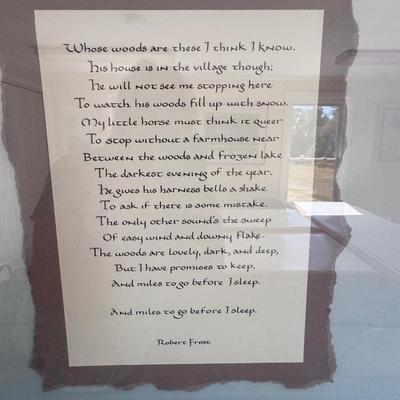 Whose woods are these I think I know.
his house is in the village though;
he will not see me stopping here
To watch his woods fill up with snow.
My little horse must think it queer
To stop without a farmhouse near
Between the woods and frozen lake
The darkest evening of the year.
he gives his harness bells a shake
To ask if there is some mistake.
The only other sound's the sweep
Of easy wind and downy flake.
The woods are lovely, dark, and deep,
But I have promises to keep,
And miles to go before I sleep.
And miles to go before I sleep.
Robert Frost